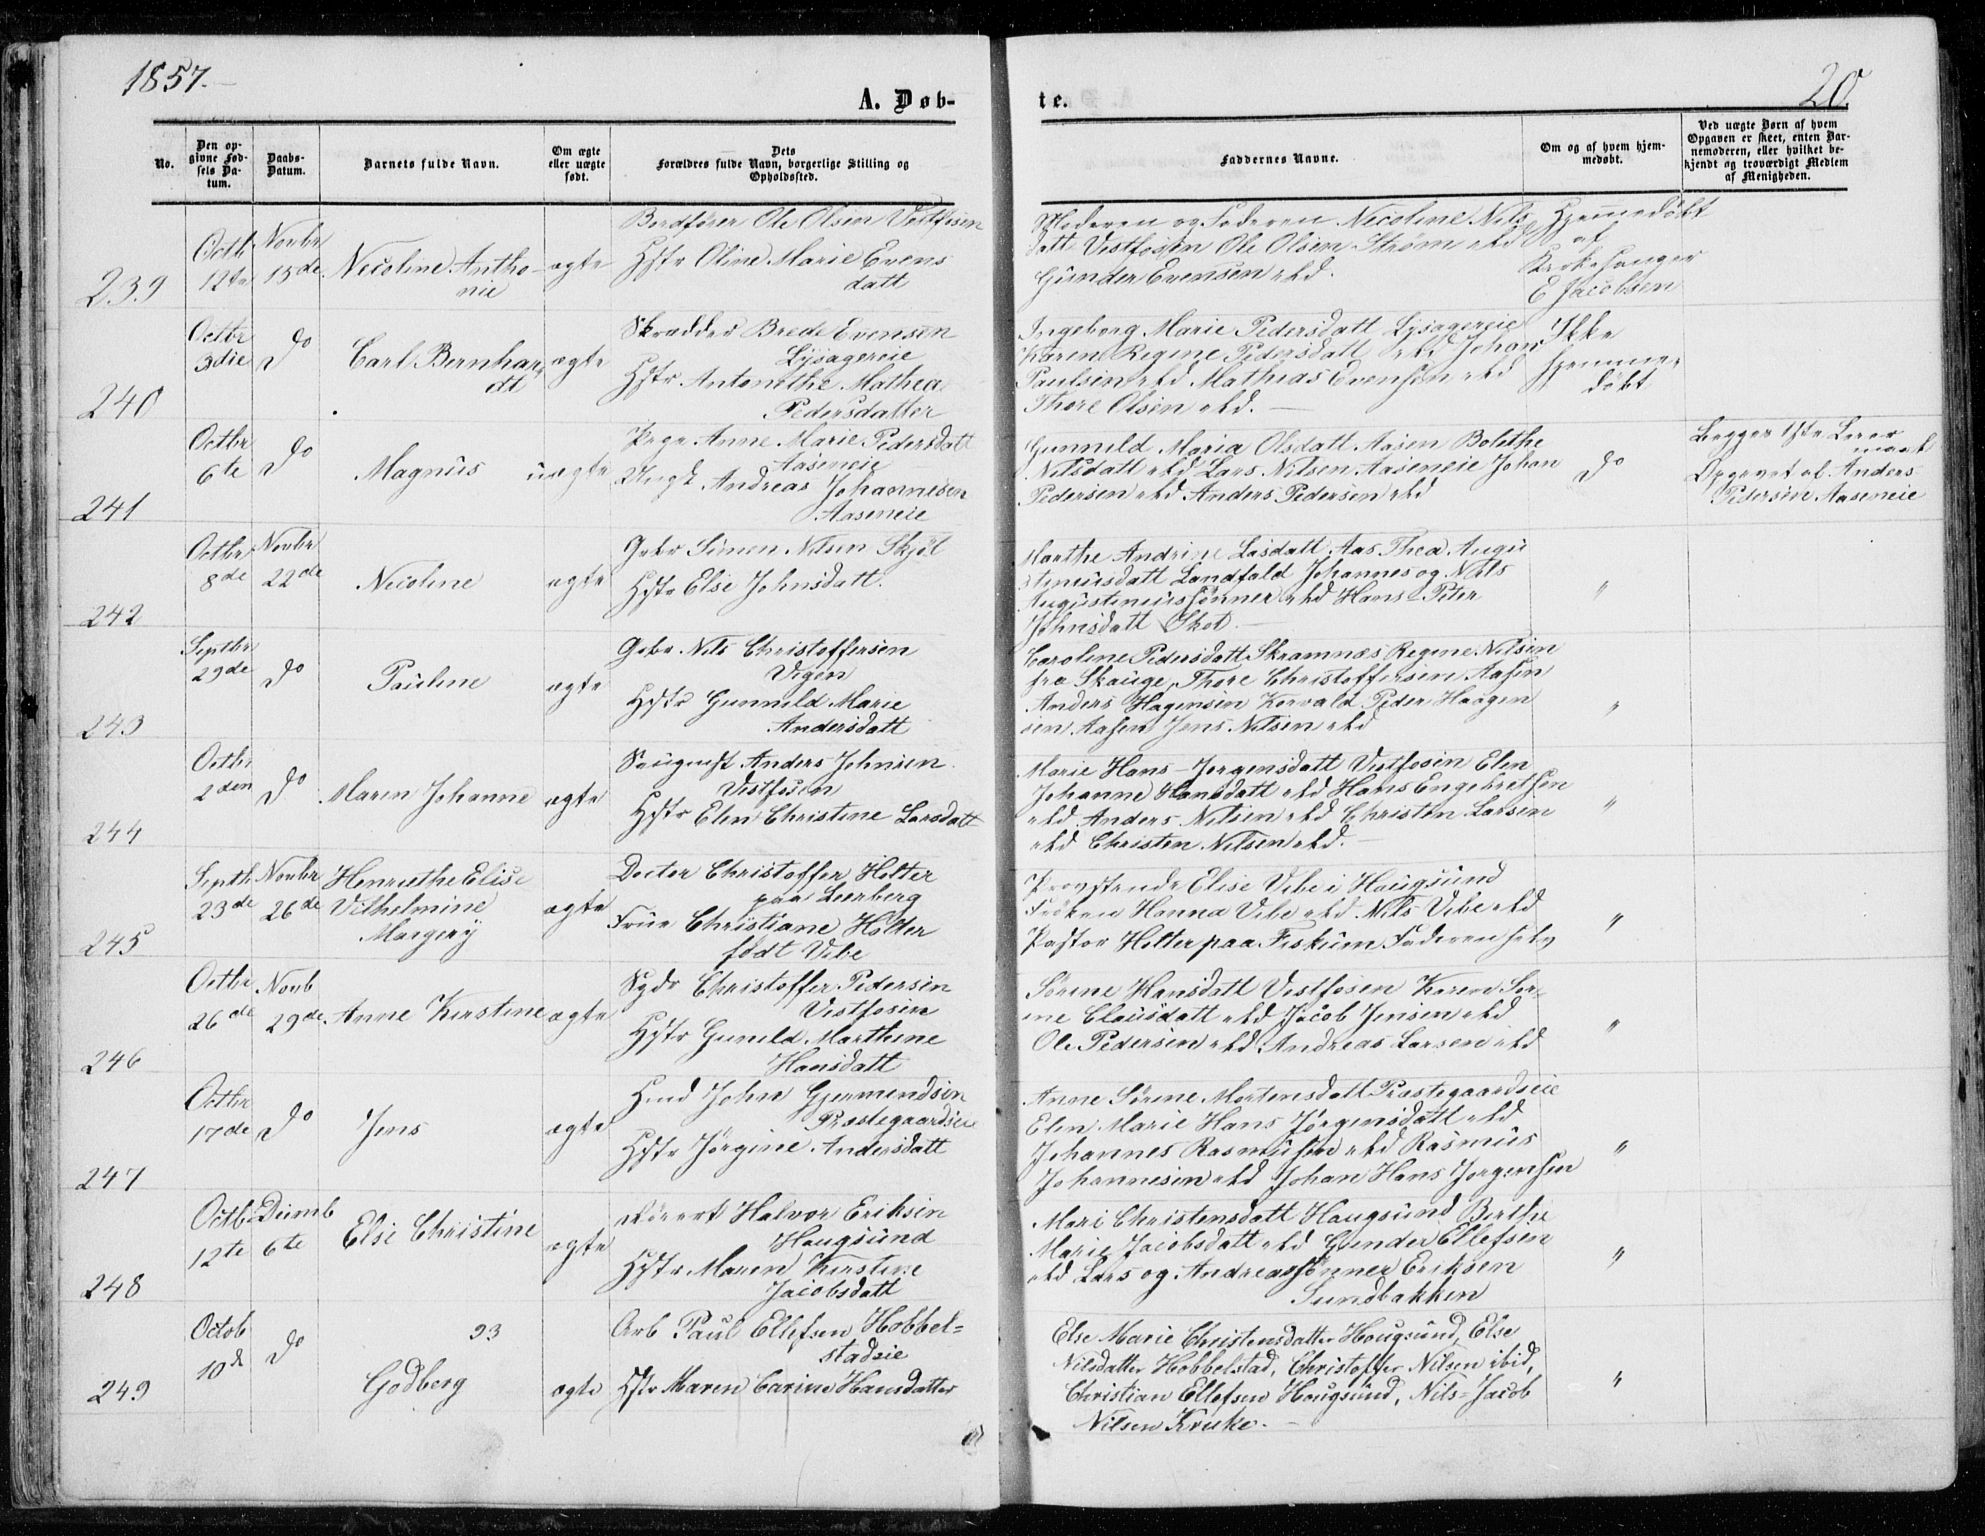 1857.
A. Døb-
te.
20.
No.
Den op-
givne Fød-
sels Da-
tum.
Daabs-
Datum.
Barnets fulde Navn.
Om ægte
eller uægte
født.
Dets
Forældres fulde Navn, borgerlige Stilling og
Opholdssted.
Faddernes Navne.
Om og af hvem hjem-
medøbt.
Ved uægte Børn af hvem
Opgaven er skeet, enten Bar-
nemoderen, eller hvilket be-
kjendt og troværdigt Medlem
af Menigheden.
239
Octb
12te
Novbr
15de
Nicoline Antho-
nie
ægte
Bordfører Ole Olsen Vestfosen
Hstr Oline Marie Evens
datt
Moderen og Faderen Nicoline Nils
datt Vestfosen Ole Olsen Strøm ibd
Gunder Evensen ibd.
Hjemmedøbt
af
Kirkesanger
E Jacobsen
240
Octbr
3die
Do
Carl Bernhar,
dt
ægte
Skrædder Brede Evensen
Lysagereie
Hstr Antonethe Mathea
Pedersdatter
Ingeborg Marie Pedersdatt Lysagereie
Karen Regine Pedersdatt ibd Johan
Paulsen ibd Mathias Evensen ibd
Thore Olsen ibd.
Ikke
hjemme-
døbt
241
Octbr
6te
Do
Magnus
uægte
Pige Anne Marie Pedersdatt
Aaseneie
Ungk Andreas Johannesen
Aaseneie
Gunneld Maria Olsdatt Aasen Bolethe
Nilsdatt ibd Lars Nilsen Aaseneie Johan
Pedersen ibd Anders Pedersen ibd
Do
Begges 1ste Leier
maal
Opgivet af Anders
Pedersen Aaseneie
242
Octbr
8de
Novbr
22de
Nicoline
ægte
Gbr Simen Nilsen Skjøl
Hstr Else Johnsdatt.
Marthe Andrine Lasdatt Aas Thea Augu
stinusdatt Landfald Johannes og Nils
Augustinussønner ibd Hans Peter
Johnsdatt Skot.
"
243
Septbr
29de
Do
Pauline
ægte
Gbr Nils Christoffersen
Vegen
Hstr Gunneld Marie
Andersdatt
Caroline Pedersdatt Skramnæs Regine Nilsen
fra Skauge, Thore Christoffersen Aasen
Anders Hagensen Korvald Peder Haagen
sen Aasen Jens Nilsen ibd
"
244
Octbr
2den
Do
Maren Johanne
ægte
Saugmst Anders Johnsen
Vestfosen
Hstr Elen Christine Larsdatt
Marie Hans-Jørgensdatt Vestfosen Elen
Johanne Hansdatt ibd Hans Engebretsen
ibd Anders Nilsen ibd Christen Larsen
ibd Christen Nilsen ibd.
"
245
Septb
23de
Novbr
26de
Henriethe Elise
Vilhelmine
Margery
ægte
Doctor Christoffer Holter
paa Leerberg
Frue Christiane Holter
født Vibe
Provstinde Elise Vibe i Haugsund
Frøken Hanna Vibe ibd Nils Vibe ibd
Pastor Holter paa Fiskum Faderen selv
"
246
Octbr
26de
Novb
29de
Anne Kirstine
ægte
Christoffer Pedersen
Vestfosen
Hstr Guneld Marthine
Hansdatt
Sørine Hansdatt Vestfosen Karen Sør-
ine Clausdatt ibd Jacob Jensen ibd
Ole Pedersen ibd Andreas Larsen ibd
"
247
Octbr
17de
Do
Jens
ægte
Hmd John Gjermundsen
Præstegaardseie
Hstr Jørgine Andersdatt
Anne Sørine Mortensdatt Præstegaardseie
Elen Marie Hans Jørgensdatt ibd
Johannes Rasmusen ibd Rasmus
Johannesen ibd Johan Hans Jørgensen
"
248
Octb
12te
Dcemb
6te
Else Christine
ægte
Halvor Eriksen
Haugsund
Hstr Maren Kirstine
Jacobsdatt
Mari Christensdatt Haugsund Berthe
Marie Jacobsdatt ibd Gunder Ellefsen
ibd Lars og Andreas sønner Eriksen
Sundbakken
"
249
Octob
10d
Do
93
Godberg
ægte
Arb Paul Ellefsen Hobbel-
stadeie
Hstr Maren Carine Hansdatter
Else Marie Christensdatter Hougsund, Else
Nilsdatter Hobbelstad, Christoffer Nilsen ibid,
Christian Ellefsen Hougsund, Nils-Jacob
Nilsen Kruke.
"